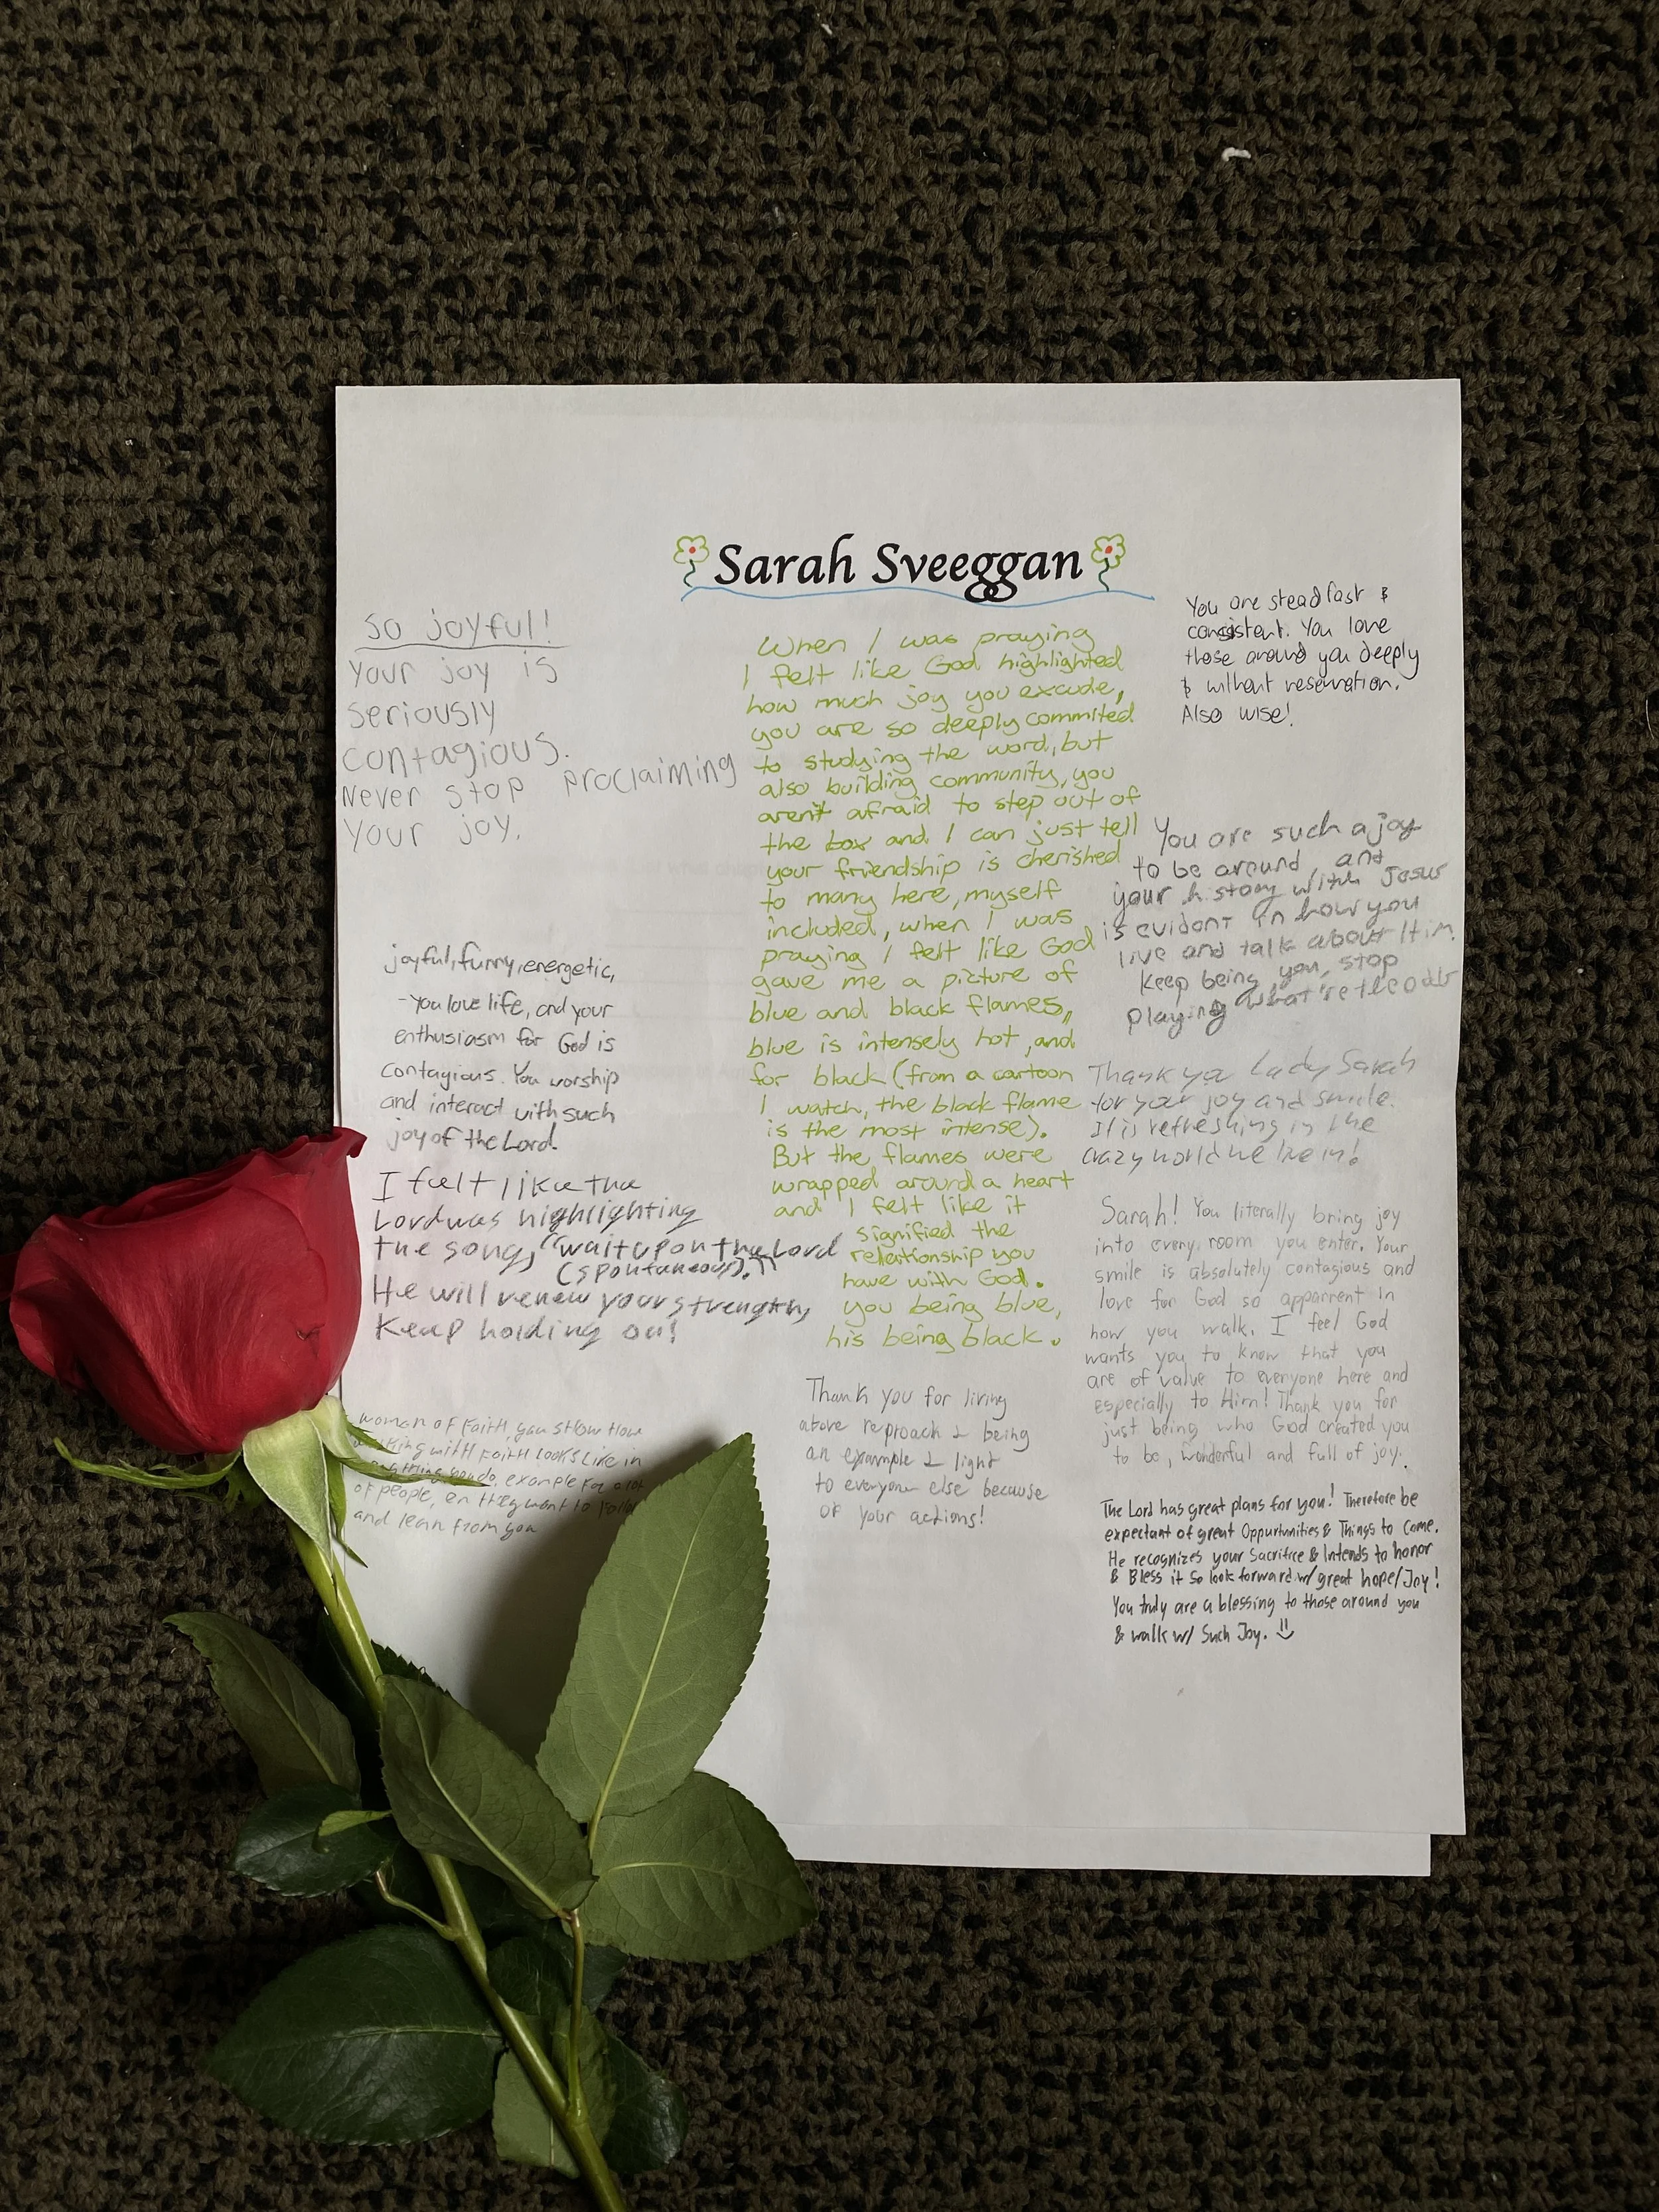 Sarah Sveeggan
So joyful!
Your joy is
seriously
contagious.
Never stop proclaiming
your joy.
joyful, funny, energetic,
-You love life, and your
enthusiasm for God is
contagious. You worship
and interact with such
joy of the Lord.
I feel like the
Lord was highlighting
the song, "wait upon the Lord
(spontaneous)."
He will renew your strength,
Keep holding on!
woman of Faith, you show How
with Faith looks Like in
you do, example For a lot
of people, en they want to
and lean from you
When I was praying
I felt like God highlighted
how much joy you exude,
you are so deeply commited
to studying the word, but
also building community, you
aren't afraid to step out of
the box and I can just tell
your friendship is cherished
to many here, myself
included, when I was
praying I felt like God
gave me a picture of
blue and black flames,,
blue is intensely hot, and
for black (from a cartoon
I watch, the black flame
is the most intense).
But the flames were
wrapped around a heart
and I felt like it
signified the
relationship you
have with God.
you being blue,
his being black.
Thank you for living
above reproach & being
an example & light
to everyone else because
of your actions!
You are steadfast &
consistent. You love
those around you deeply
& without reservation.
Also wise!
You are such a joy
to be around, and
your history with Jesus
is evident in how you
live and talk about Him.
Keep being you, stop
playing
Thank you Lady Sarah
for your joy and smile.
It is refreshing in the
crazy world we live in!
Sarah! You literally bring joy
into every room you enter. Your
smile is absolutely contagious and
love for God so apparent in
how you walk. I feel God
wants you to know that you
are of value to everyone here and
especially to Him! Thank you for
just being who God created you
to be, wonderful and full of joy.
The Lord has great plans for you! Therefore be
expectant of great Oppurtunities & Things to Come.
He recognizes your Sacrifice & Intends to honor
& Bless it so look forward w/ great hope/Joy!
You truly are a blessing to those around you
& walk w/ Such Joy.